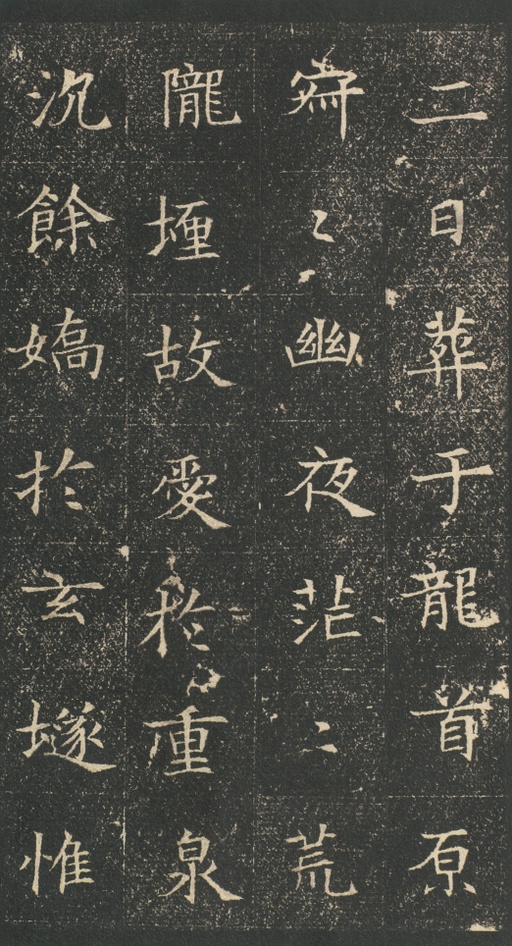 二日葬于龍首原
窈〻幽夜茫〻荒
隴堙故愛扵重泉
沉餘嬌扵玄墜惟